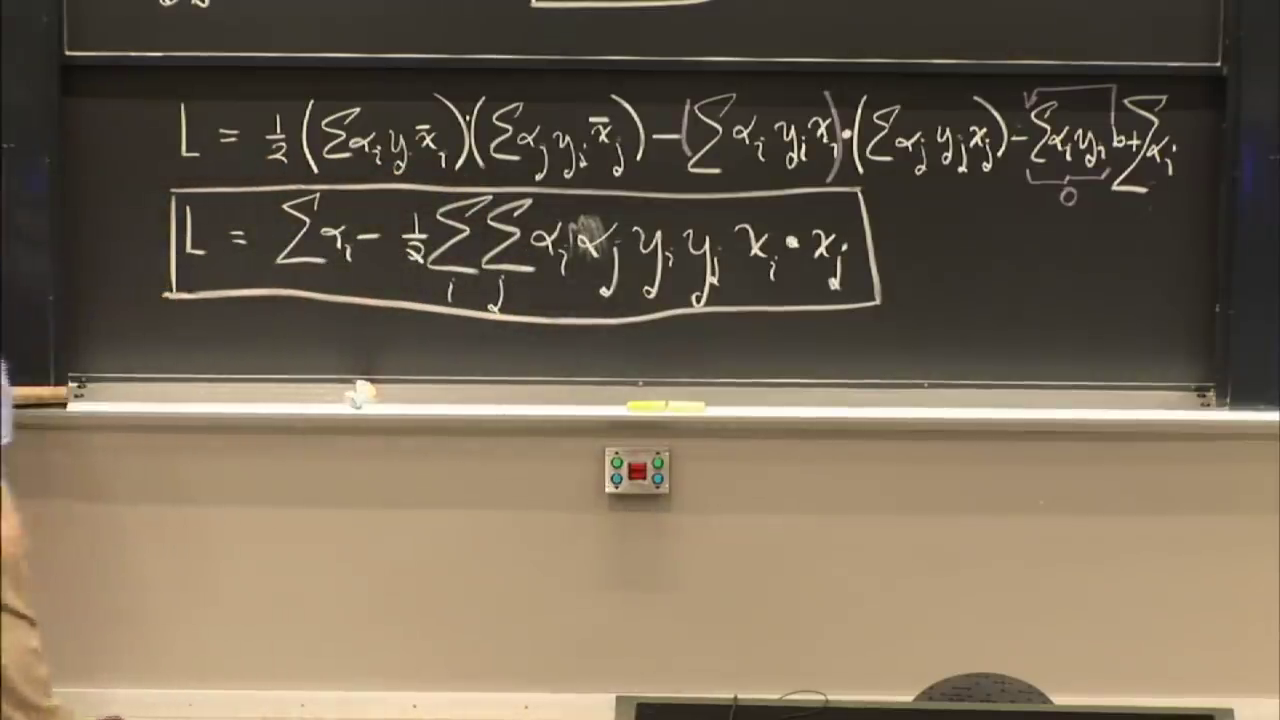 L = ½ (∑αᵢyᵢx̄ᵢ)·(∑αⱼyⱼx̄ⱼ) – (∑αᵢyᵢxᵢ)·(∑αⱼyⱼxⱼ) – ∑αᵢyᵢb + ∑αᵢ
0
L = ∑αᵢ – ½∑ᵢ∑ⱼ αᵢαⱼ yᵢyⱼ xᵢ·xⱼ